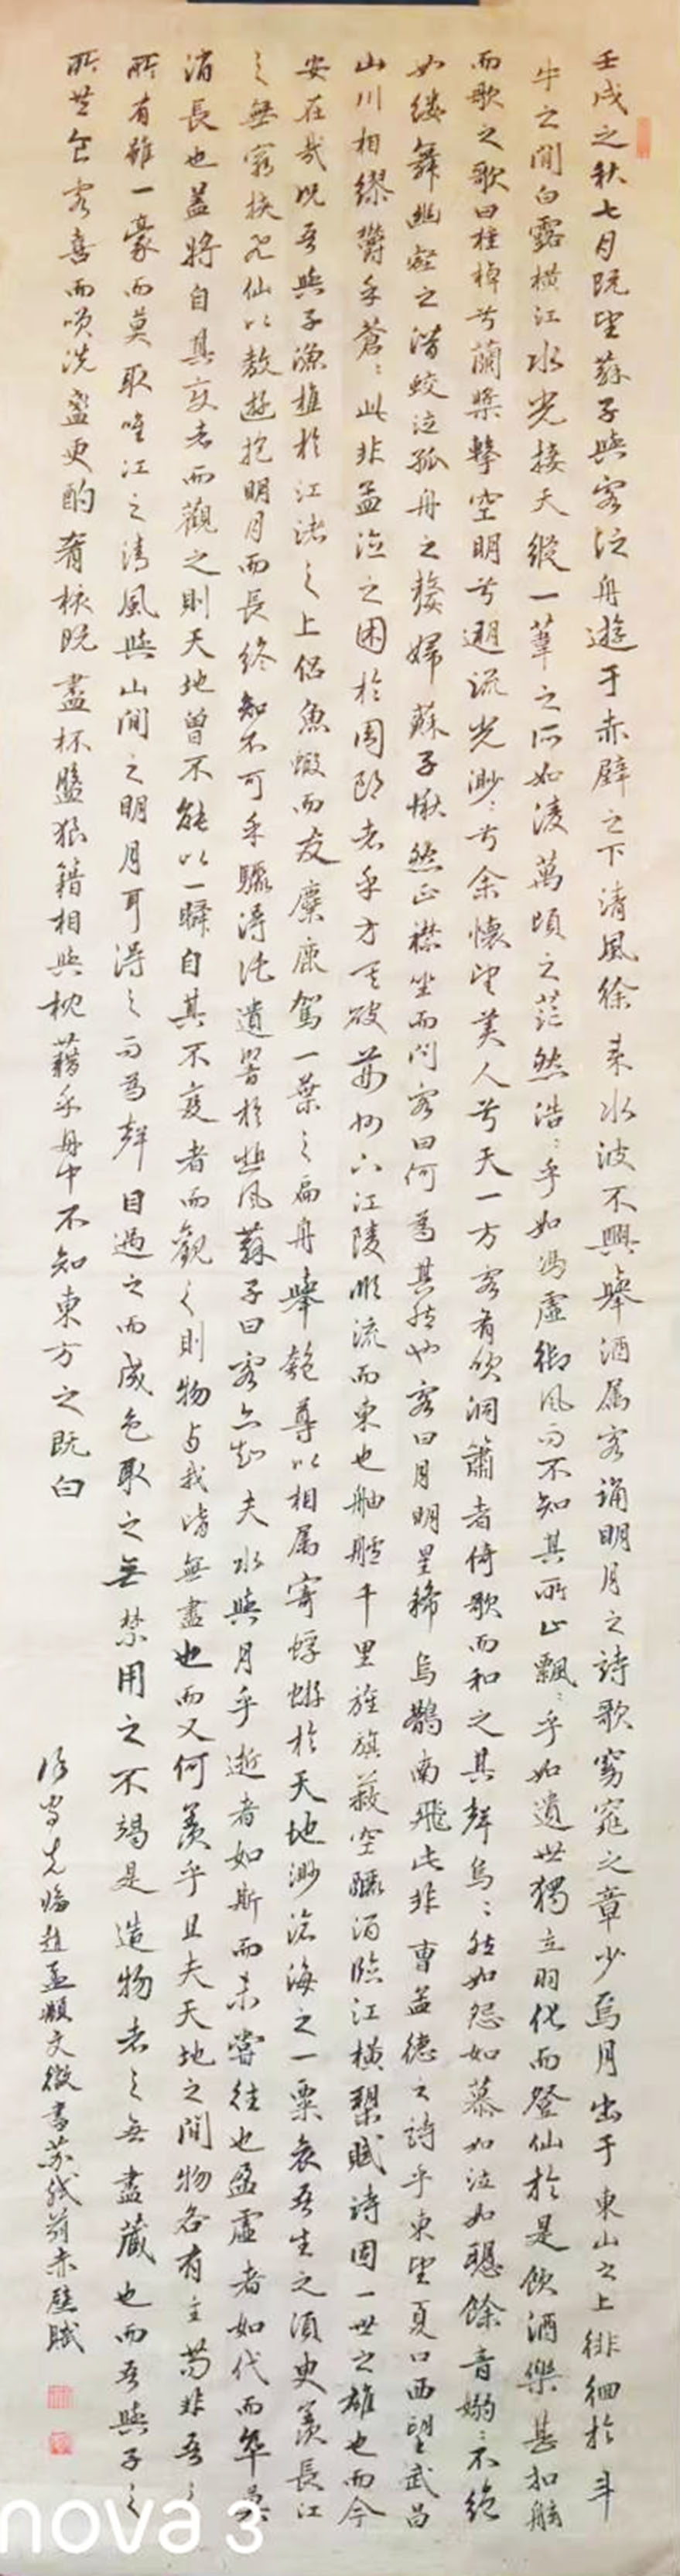 壬戌之秋七月既望蘇子與客泛舟遊于赤壁之下清風徐來水波不興舉酒属客誦明月之詩歌窈窕之章少焉月出于東山之上徘徊於斗
牛之間白露橫江水光接天縱一葦之所如凌萬頃之茫然浩:乎如馮虛御風而不知其所止飄:乎如遺世獨立羽化而登仙於是飲酒樂甚扣舷
而歌之歌曰桂棹兮蘭槳擊空明兮遡流光渺:兮余懷望美人兮天一方客有吹洞簫者倚歌而和之其聲烏:然如怨如慕如泣如聽餘音嫋:不絕
如縷舞幽壑之潛蛟泣孤舟之嫠婦蘇子愀然正襟坐而問客曰何為其然也客曰月明星稀烏鵲南飛此非曹孟德之詩乎東望夏口西望武昌
山川相繆欝乎蒼:此非孟德之困於周郎者乎方其破荊州下江陵順流而東也舳艫千里旌旗蔽空釃酒臨江橫槊賦詩固一世之雄也而今
安在哉況吾與子漁樵於江渚之上侶魚蝦而友麋鹿駕一葉之扁舟舉匏尊以相属寄蜉蝣於天地渺滄海之一粟哀吾生之須臾羨長江
之無窮挾飛仙以敖遊抱明月而長終知不可乎驟得託遺響於悲風蘇子曰客亦知夫水與月乎逝者如斯而未嘗往也盈虛者如代而卒莫
消長也蓋將自其変者而觀之則天地曾不能以一瞬自其不変者而觀之則物与我皆無盡也而又何羨乎且夫天地之間物各有主苟非吾之
所有雖一豪而莫取唯江之清風與山間之明月耳得之而為聲目遇之而成色取之無禁用之不竭是造物者之無盡藏也而吾與子之
所共食客喜而笑洗盞更酌肴核既盡杯盤狼籍相與枕藉乎舟中不知東方之既白
臨趙孟頫文徵書蘇軾前赤壁賦
nova 3